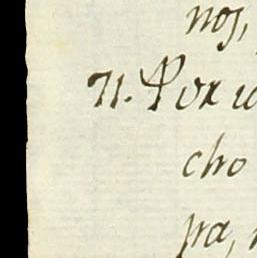 nos,
71. Por
cho
pra,